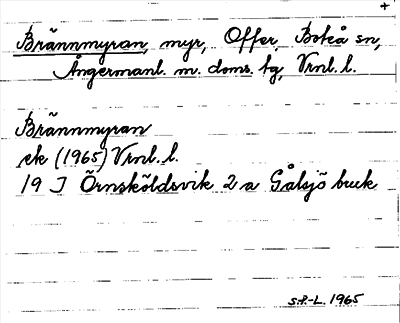 +
Brännmyran, myr, Offer, Boteå sn,
Ångermanl. m. doms. tg, Vrnl. l.
Brännmyran
ek (1965) Vrnl. l.
19 J Örnsköldsvik 2 a Gålsjö bruk
S.P-L. 1965